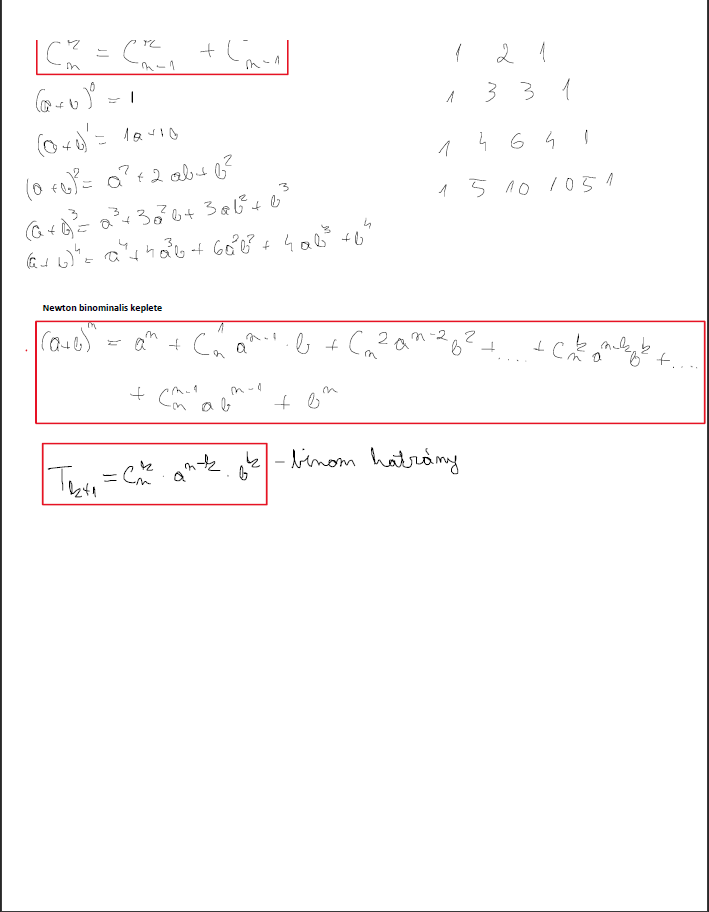 C_n^k = C_{n-1}^k + C_{n-1}
(a+b)^0 = 1
(a+b)^1 = 1a+1b
(a+b)^2 = a^2 + 2ab+b^2
(a+b)^3 = a^3+3a^2b+3ab^2+b^3
(a+b)^4 = a^4+4a^3b+6a^2b^2+4ab^3+b^4
1 2 1
1 3 3 1
1 4 6 4 1
1 5 10 10 5 1
Newton binominalis keplete
(a+b)^n = a^n + C_n^1 a^{n-1} · b + C_n^2 a^{n-2} b^2 + .... + C_n^k a^{n-k} b^k + ....
+ C_n^{n-1} a b^{n-1} + b^n
T_{k+1} = C_n^k · a^{n-k} · b^k - binom hatrány